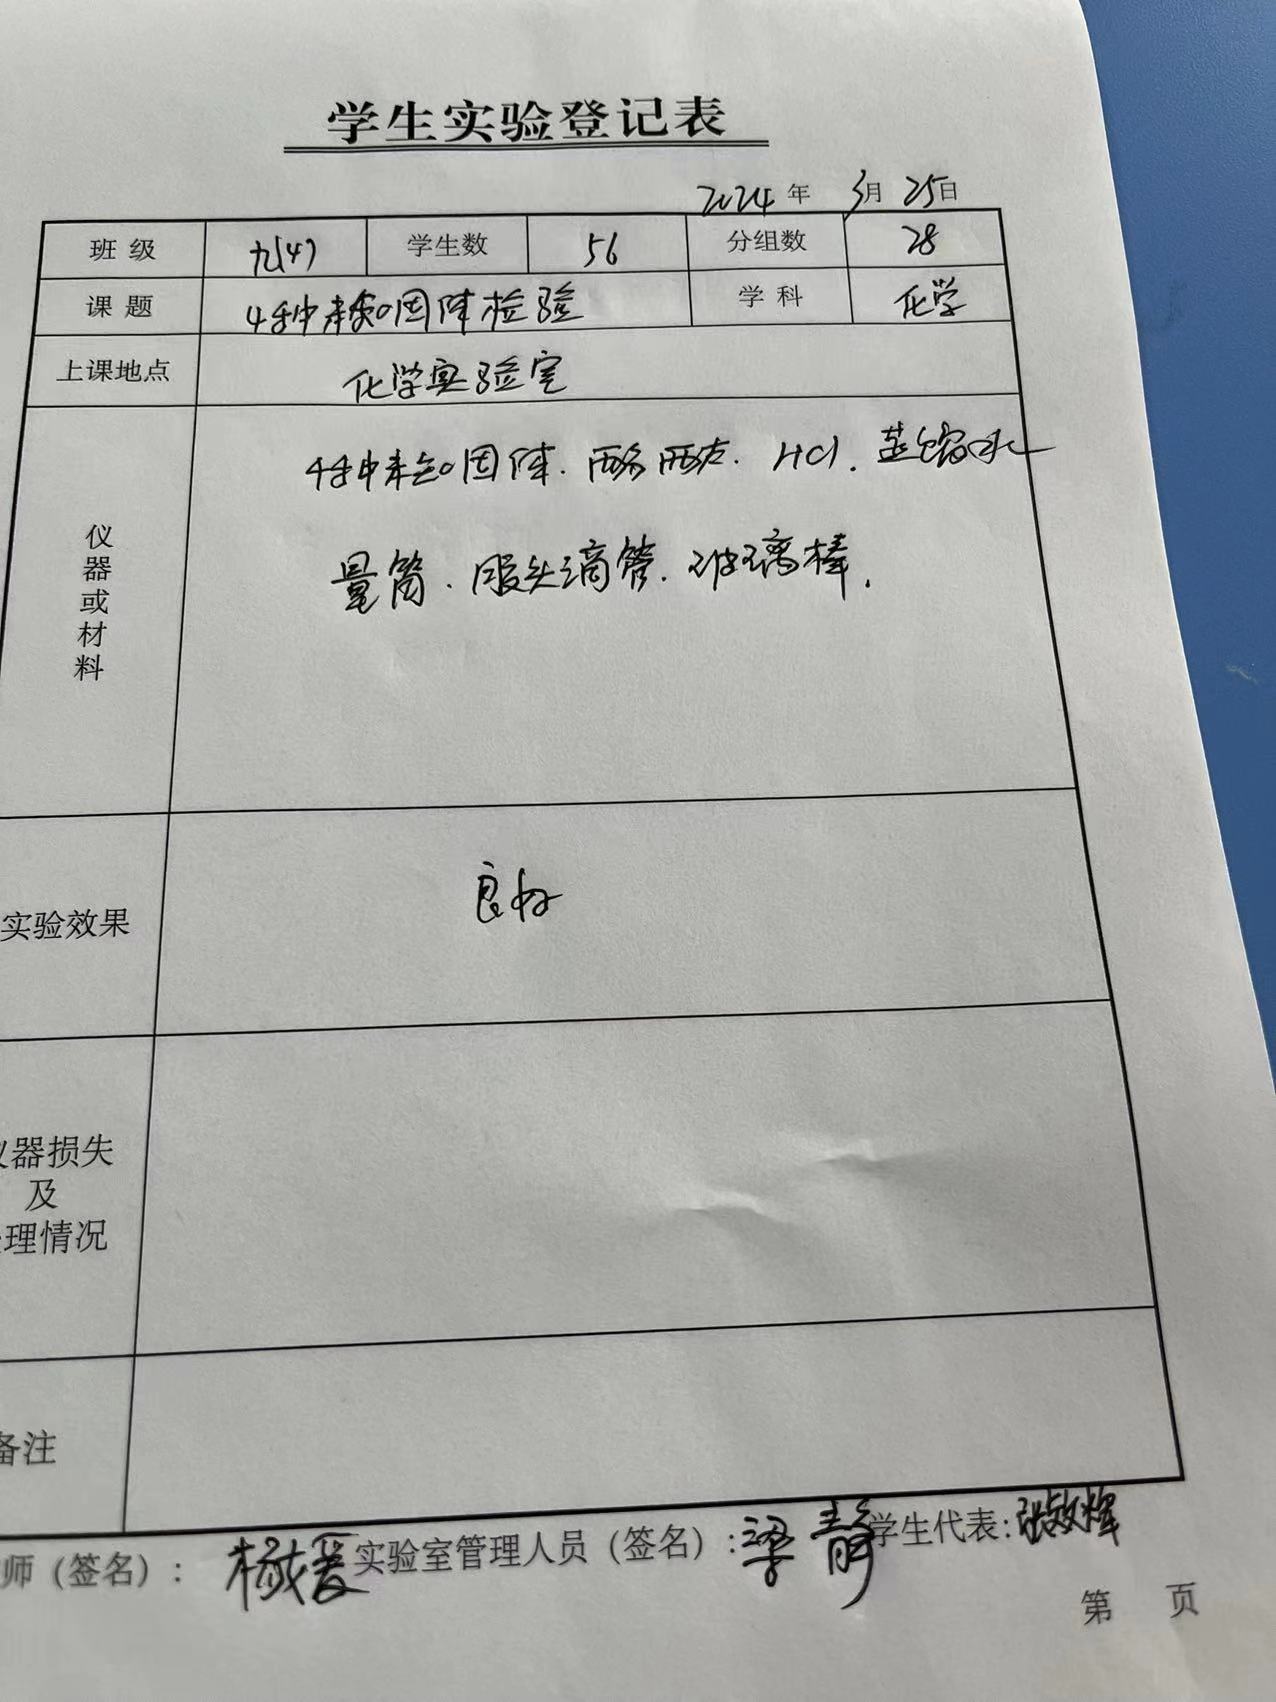 学生实验登记表
2024年 3月 25日
班级 九(4) 学生数 56 分组数 28
课题 4种未知固体检验 学科 化学
上课地点 化学实验室
仪器或材料
4种未知固体. 酚酞. HCl. 蒸馏水
量筒. 胶头滴管. 玻璃棒.
实验效果 良好
仪器损失
及
理情况
备注
师(签名): 实验室管理人员(签名):梁静 学生代表:张效辉
第 页